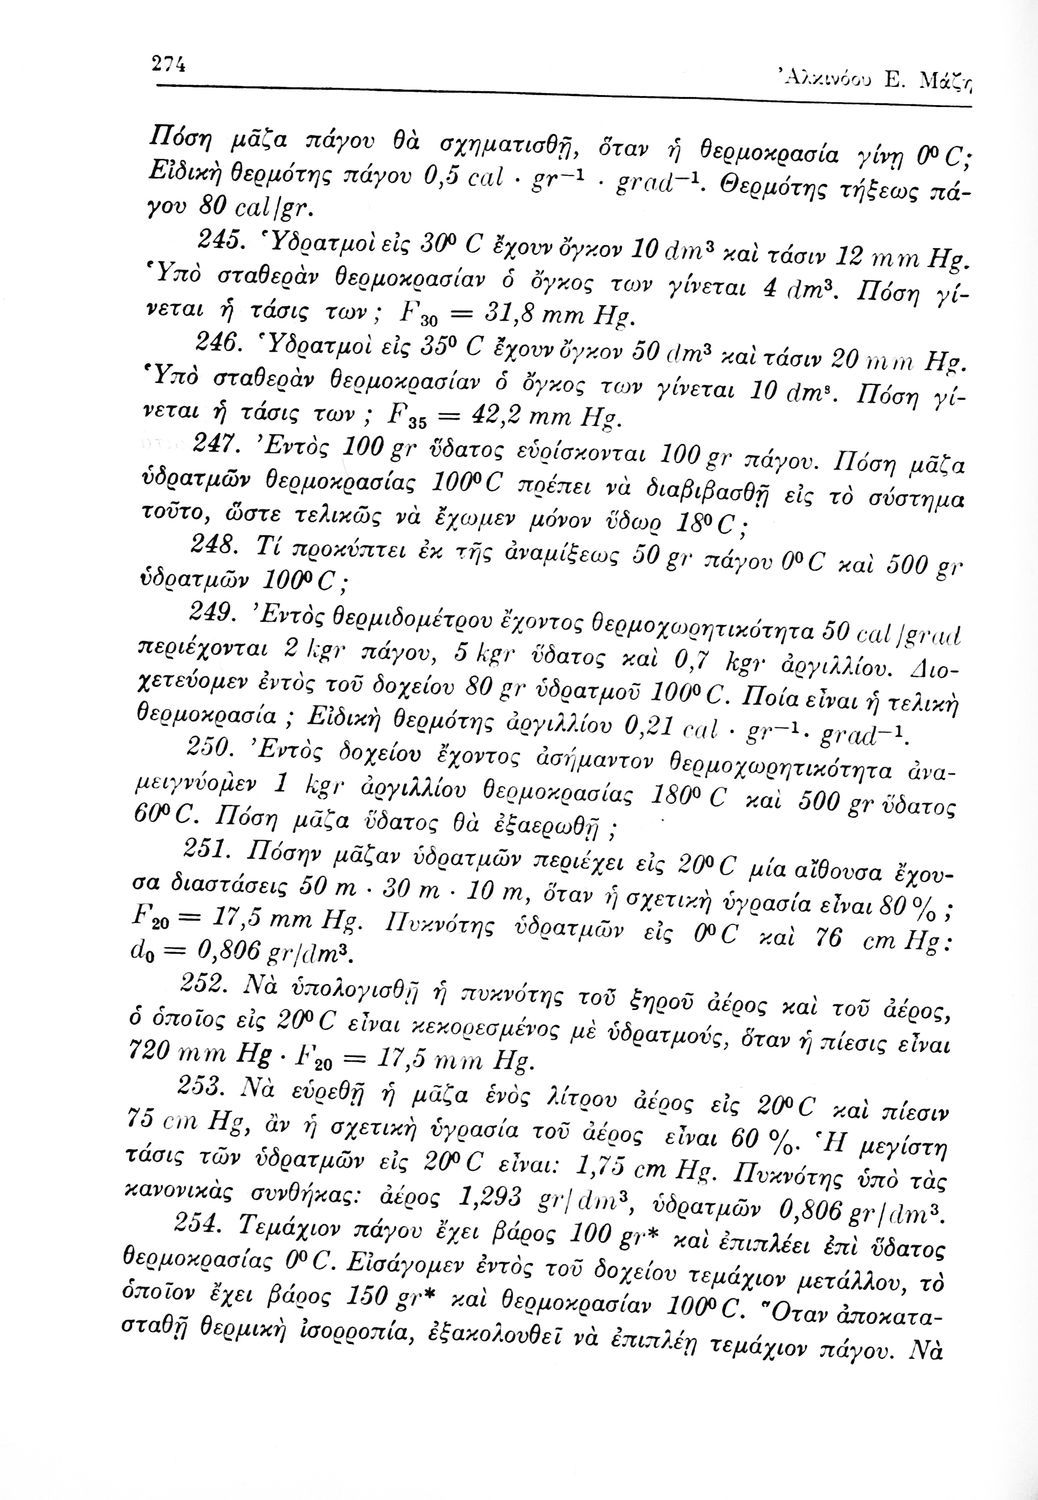 274
Ἀλκινόου Ε. Μάζη
Πόση μᾶζα πάγου θὰ σχηματισθῇ, ὅταν ἡ θερμοκρασία γίνῃ 0⁰ C;
Εἰδικὴ θερμότης πάγου 0,5 cal · gr⁻¹ · grad⁻¹. Θερμότης τήξεως πά-
γου 80 cal/gr.
245. Ὑδρατμοὶ εἰς 30⁰ C ἔχουν ὄγκον 10 dm³ καὶ τάσιν 12 mm Hg.
Ὑπὸ σταθερὰν θερμοκρασίαν ὁ ὄγκος των γίνεται 4 dm³. Πόση γί-
νεται ἡ τάσις των; F₃₀ = 31,8 mm Hg.
246. Ὑδρατμοὶ εἰς 35⁰ C ἔχουν ὄγκον 50 dm³ καὶ τάσιν 20 mm Hg.
Ὑπὸ σταθερὰν θερμοκρασίαν ὁ ὄγκος των γίνεται 10 dm³. Πόση γί-
νεται ἡ τάσις των ; F₃₅ = 42,2 mm Hg.
247. Ἐντὸς 100 gr ὕδατος εὑρίσκονται 100 gr πάγου. Πόση μᾶζα
ὑδρατμῶν θερμοκρασίας 100⁰ C πρέπει νὰ διαβιβασθῇ εἰς τὸ σύστημα
τοῦτο, ὥστε τελικῶς νὰ ἔχωμεν μόνον ὕδωρ 18⁰ C;
248. Τί προκύπτει ἐκ τῆς ἀναμίξεως 50 gr πάγου 0⁰ C καὶ 500 gr
ὑδρατμῶν 100⁰ C ;
249. Ἐντὸς θερμιδομέτρου ἔχοντος θερμοχωρητικότητα 50 cal/grad
περιέχονται 2 kgr πάγου, 5 kgr ὕδατος καὶ 0,7 kgr ἀργιλλίου. Διο-
χετεύομεν ἐντὸς τοῦ δοχείου 80 gr ὑδρατμοῦ 100⁰ C. Ποία εἶναι ἡ τελικὴ
θερμοκρασία ; Εἰδικὴ θερμότης ἀργιλλίου 0,21 cal · gr⁻¹· grad⁻¹.
250. Ἐντὸς δοχείου ἔχοντος ἀσήμαντον θερμοχωρητικότητα ἀνα-
μειγνύομεν 1 kgr ἀργιλλίου θερμοκρασίας 180⁰ C καὶ 500 gr ὕδατος
60⁰ C. Πόση μᾶζα ὕδατος θὰ ἐξαερωθῇ ;
251. Πόσην μᾶζαν ὑδρατμῶν περιέχει εἰς 20⁰ C μία αἴθουσα ἔχου-
σα διαστάσεις 50 m · 30 m · 10 m, ὅταν ἡ σχετικὴ ὑγρασία εἶναι 80 % ;
F₂₀ = 17,5 mm Hg. Πυκνότης ὑδρατμῶν εἰς 0⁰ C καὶ 76 cm Hg:
d₀ = 0,806 gr/dm³.
252. Νὰ ὑπολογισθῇ ἡ πυκνότης τοῦ ξηροῦ ἀέρος καὶ τοῦ ἀέρος,
ὁ ὁποῖος εἰς 20⁰ C εἶναι κεκορεσμένος μὲ ὑδρατμούς, ὅταν ἡ πίεσις εἶναι
720 mm Hg · F₂₀ = 17,5 mm Hg.
253. Νὰ εὑρεθῇ ἡ μᾶζα ἑνὸς λίτρου ἀέρος εἰς 20⁰ C καὶ πίεσιν
75 cm Hg, ἂν ἡ σχετικὴ ὑγρασία τοῦ ἀέρος εἶναι 60 %. Ἡ μεγίστη
τάσις τῶν ὑδρατμῶν εἰς 20⁰ C εἶναι: 1,75 cm Hg. Πυκνότης ὑπὸ τὰς
κανονικὰς συνθήκας: ἀέρος 1,293 gr/dm³, ὑδρατμῶν 0,806 gr/dm³.
254. Τεμάχιον πάγου ἔχει βάρος 100 gr* καὶ ἐπιπλέει ἐπὶ ὕδατος
θερμοκρασίας 0⁰ C. Εἰσάγομεν ἐντὸς τοῦ δοχείου τεμάχιον μετάλλου, τὸ
ὁποῖον ἔχει βάρος 150 gr* καὶ θερμοκρασίαν 100⁰ C. Ὅταν ἀποκατα-
σταθῇ θερμικὴ ἰσορροπία, ἐξακολουθεῖ νὰ ἐπιπλέῃ τεμάχιον πάγου. Νὰ